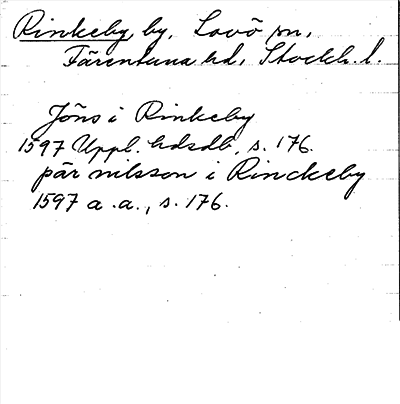 Rinkeby by, Lovö sn,
Färentuna hd, Stockh. l.
Jöns i Rinkeby
1597 Uppl. hdsdb, s. 176.
pär nilsson i Rinckeby
1597 a.a., s. 176.